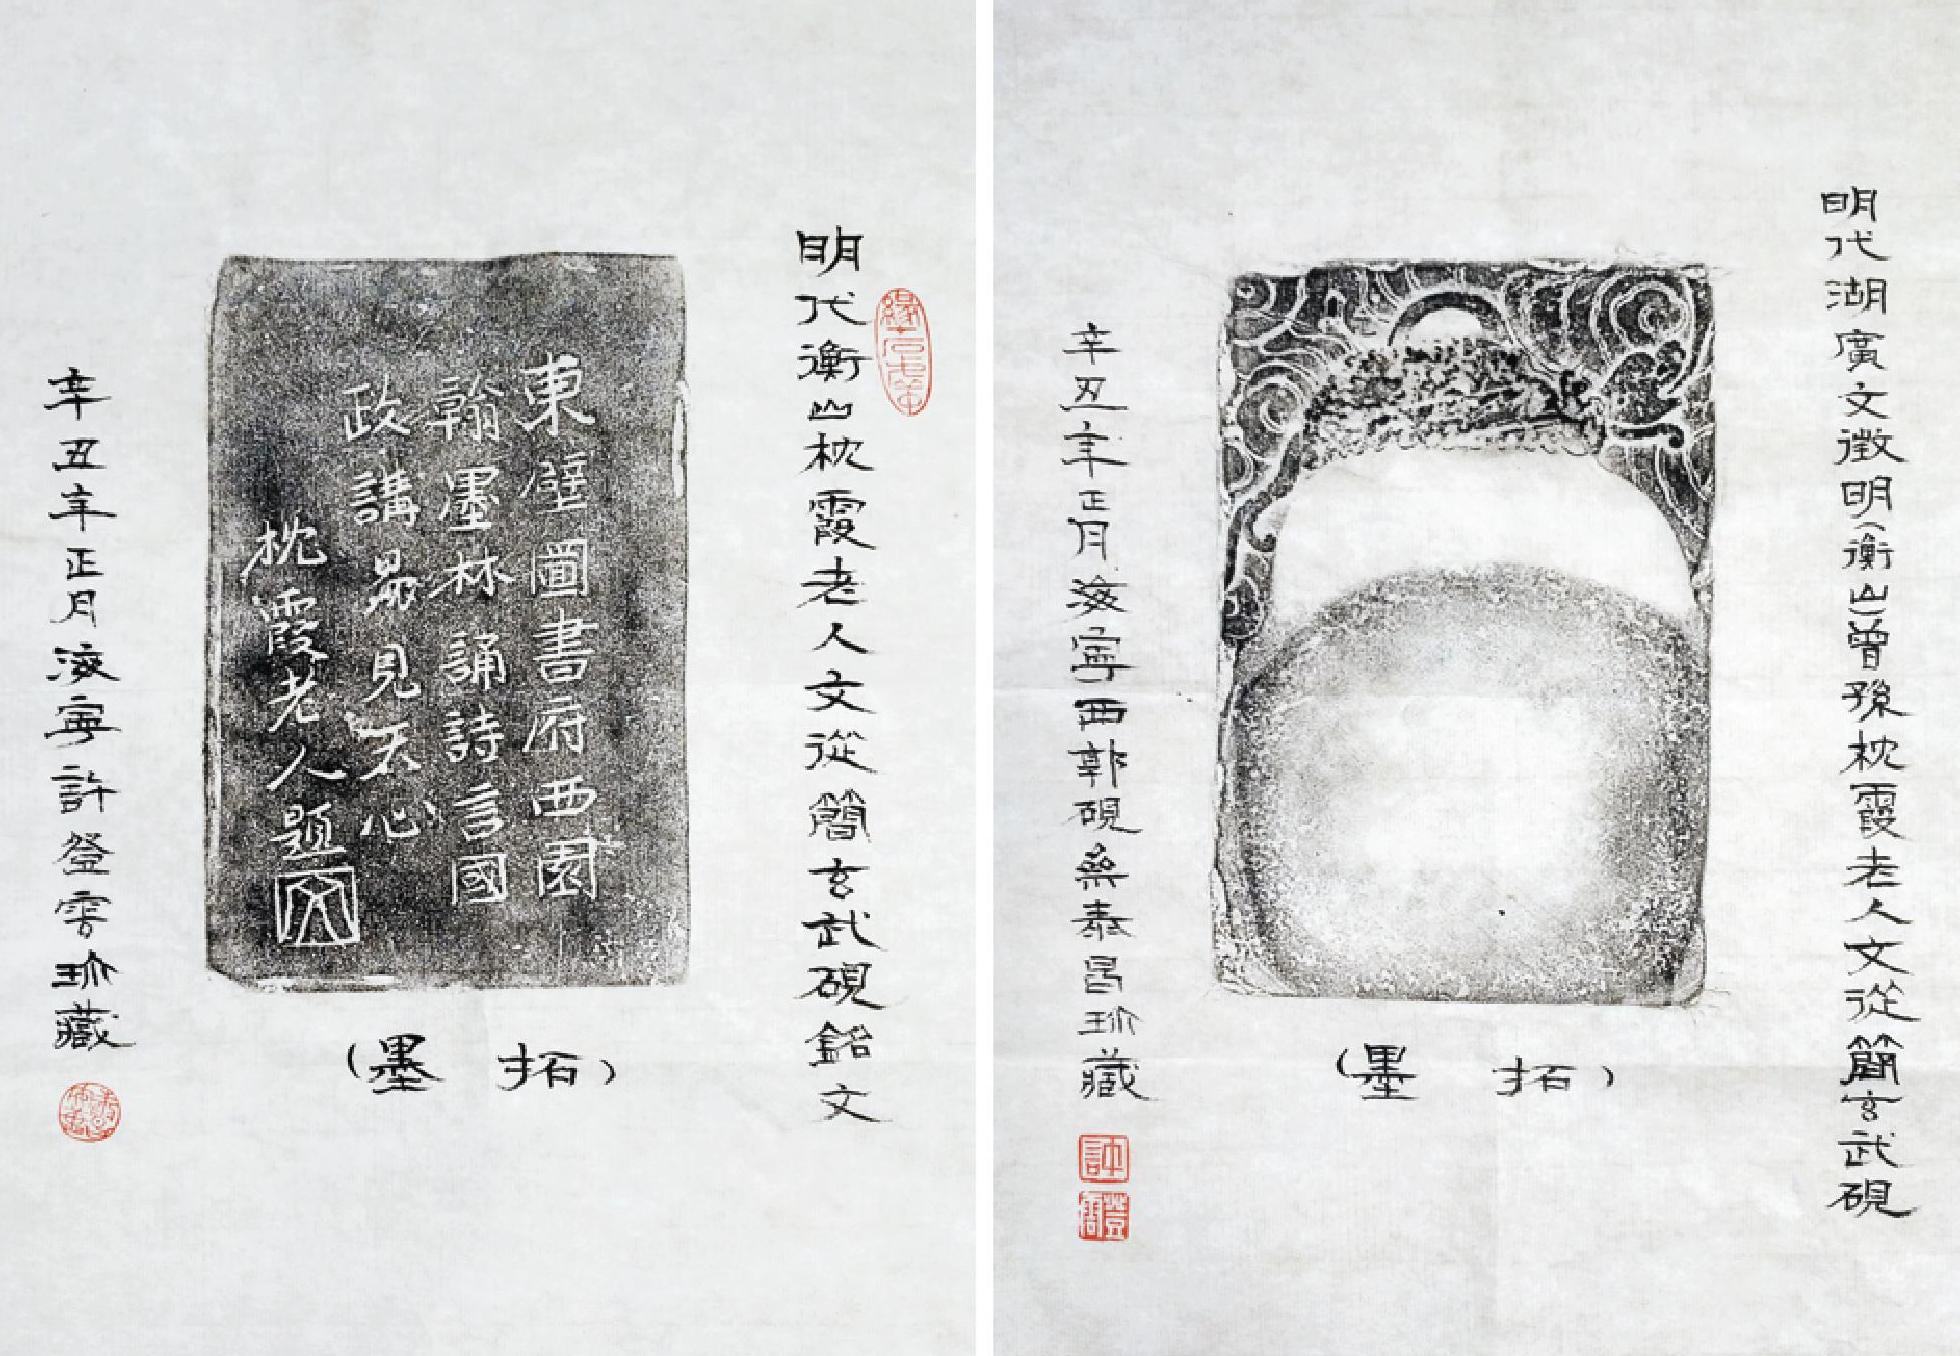 明代衡山枕霞老人文從簡玄武硯銘文
東壁圖書府西園
翰墨林誦詩言國
政講易見天心
枕霞老人題
文
辛丑年正月海寧許登雲珍藏
(墨拓)
明代湖廣文徵明(衡山)曾孫枕霞老人文從簡玄武硯
辛丑年正月海寧西郭硯桑泰昌珍藏
(墨拓)
許
登雲